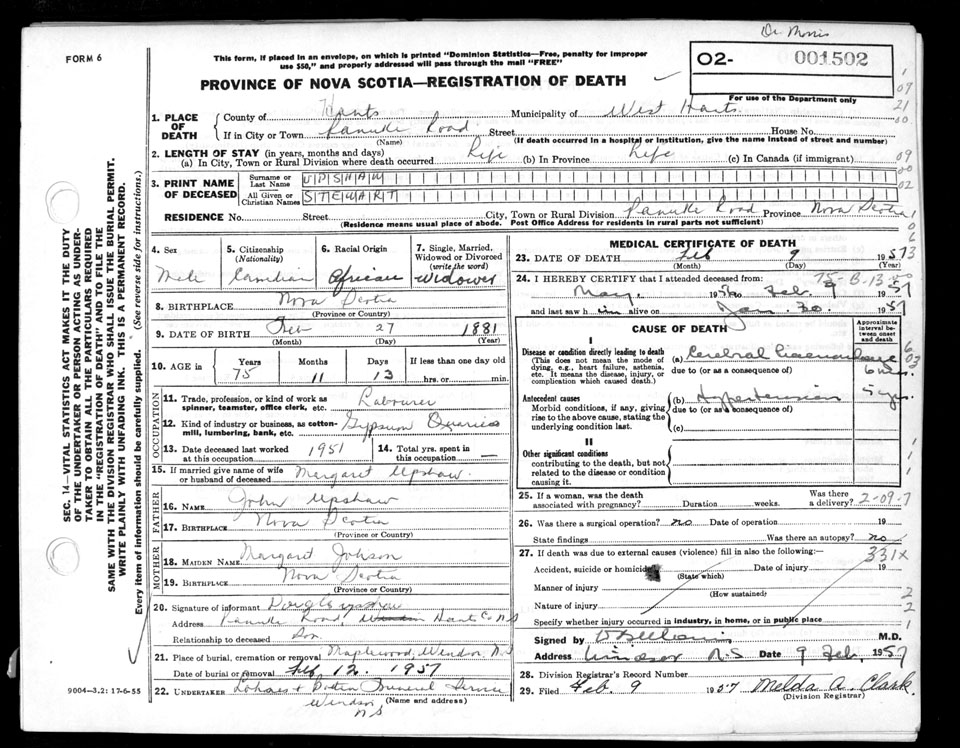 Dr Morris
FORM 6
This form, if placed in an envelope, on which is printed "Dominion Statistics—Free, penalty for improper
use $50," and properly addressed will pass through the mail "FREE"
O2- 001502
PROVINCE OF NOVA SCOTIA—REGISTRATION OF DEATH
For use of the Department only
1. PLACE OF DEATH
County of Hants Municipality of West Hants
If in City or Town Panuke Road Street House No.
(Name) (If death occurred in a hospital or institution, give the name instead of street and number)
2. LENGTH OF STAY (in years, months and days)
(a) In City, Town or Rural Division where death occurred Life (b) In Province Life (c) In Canada (if immigrant)
3. PRINT NAME OF DECEASED
Surname or Last Name UPSHAW
All Given or Christian Names STEWART
RESIDENCE No. Street City, Town or Rural Division Panuke Road Province Nova Scotia
(Residence means usual place of abode. Post Office Address for residents in rural parts not sufficient)
4. Sex Male
5. Citizenship (Nationality) Canadian
6. Racial Origin African
7. Single, Married, Widowed or Divorced (write the word) Widower
8. BIRTHPLACE Nova Scotia
(Province or Country)
9. DATE OF BIRTH Feb 27 1881
(Month) (Day) (Year)
10. AGE in Years 75 Months 11 Days 13 If less than one day old hrs. or min.
OCCUPATION
11. Trade, profession, or kind of work as spinner, teamster, office clerk, etc. Labourer
12. Kind of industry or business, as cotton-mill, lumbering, bank, etc. Gypsum Quarries
13. Date deceased last worked at this occupation 1951
14. Total yrs. spent in this occupation —
15. If married give name of wife or husband of deceased Margaret Upshaw
FATHER
16. NAME John Upshaw
17. BIRTHPLACE Nova Scotia
(Province or Country)
MOTHER
18. MAIDEN NAME Margaret Johson
19. BIRTHPLACE Nova Scotia
(Province or Country)
20. Signature of informant
Address Panuke Road Hants Co NS
Relationship to deceased Son
21. Place of burial, cremation or removal Maplewood, Windsor, N.S
Date of burial or removal Feb 12. 1957
22. UNDERTAKER Funeral Service
Windsor (Name and address)
NS
MEDICAL CERTIFICATE OF DEATH
23. DATE OF DEATH Feb 9 1957
(Month) (Day) (Year)
24. I HEREBY CERTIFY that I attended deceased from:
May 195 to Feb. 9 1957
and last saw him alive on Jan. 30. 1957
CAUSE OF DEATH
Approximate interval between onset and death
I
Disease or condition directly leading to death (a) Cerebral Haemorrhage
(This does not mean the mode of dying, e.g., heart failure, asthenia, etc. It means the disease, injury, or complication which caused death.)
due to (or as a consequence of)
Antecedent causes (b) Hypertension 5 yrs.
Morbid conditions, if any, giving rise to the above cause, stating the underlying condition last.
due to (or as a consequence of)
(c)
II
Other significant conditions
contributing to the death, but not related to the disease or condition causing it.
25. If a woman, was the death associated with pregnancy? Duration weeks. Was there a delivery? 2-09-7
26. Was there a surgical operation? no Date of operation 19
State findings Was there an autopsy? no
27. If death was due to external causes (violence) fill in also the following:— 331X
Accident, suicide or homicide Date of injury 19
(State which)
Manner of injury
(How sustained)
Nature of injury
Specify whether injury occurred in industry, in home, or in public place
Signed by M.D.
Address Windsor N.S Date 9 Feb. 1957
28. Division Registrar's Record Number
29. Filed Feb 9 1957 Melda A. Clark
(Division Registrar)
SEC. 14—VITAL STATISTICS ACT MAKES IT THE DUTY
OF THE UNDERTAKER OR PERSON ACTING AS UNDER-
TAKER TO OBTAIN ALL THE PARTICULARS REQUIRED
IN THE "REGISTRATION OF DEATH" AND TO FILE THE
SAME WITH THE DIVISION REGISTRAR WHO SHALL ISSUE THE BURIAL PERMIT.
WRITE PLAINLY WITH UNFADING INK. THIS IS A PERMANENT RECORD.
Every item of information should be carefully supplied. (See reverse side for instructions.)
9004-3.2: 17-6-55